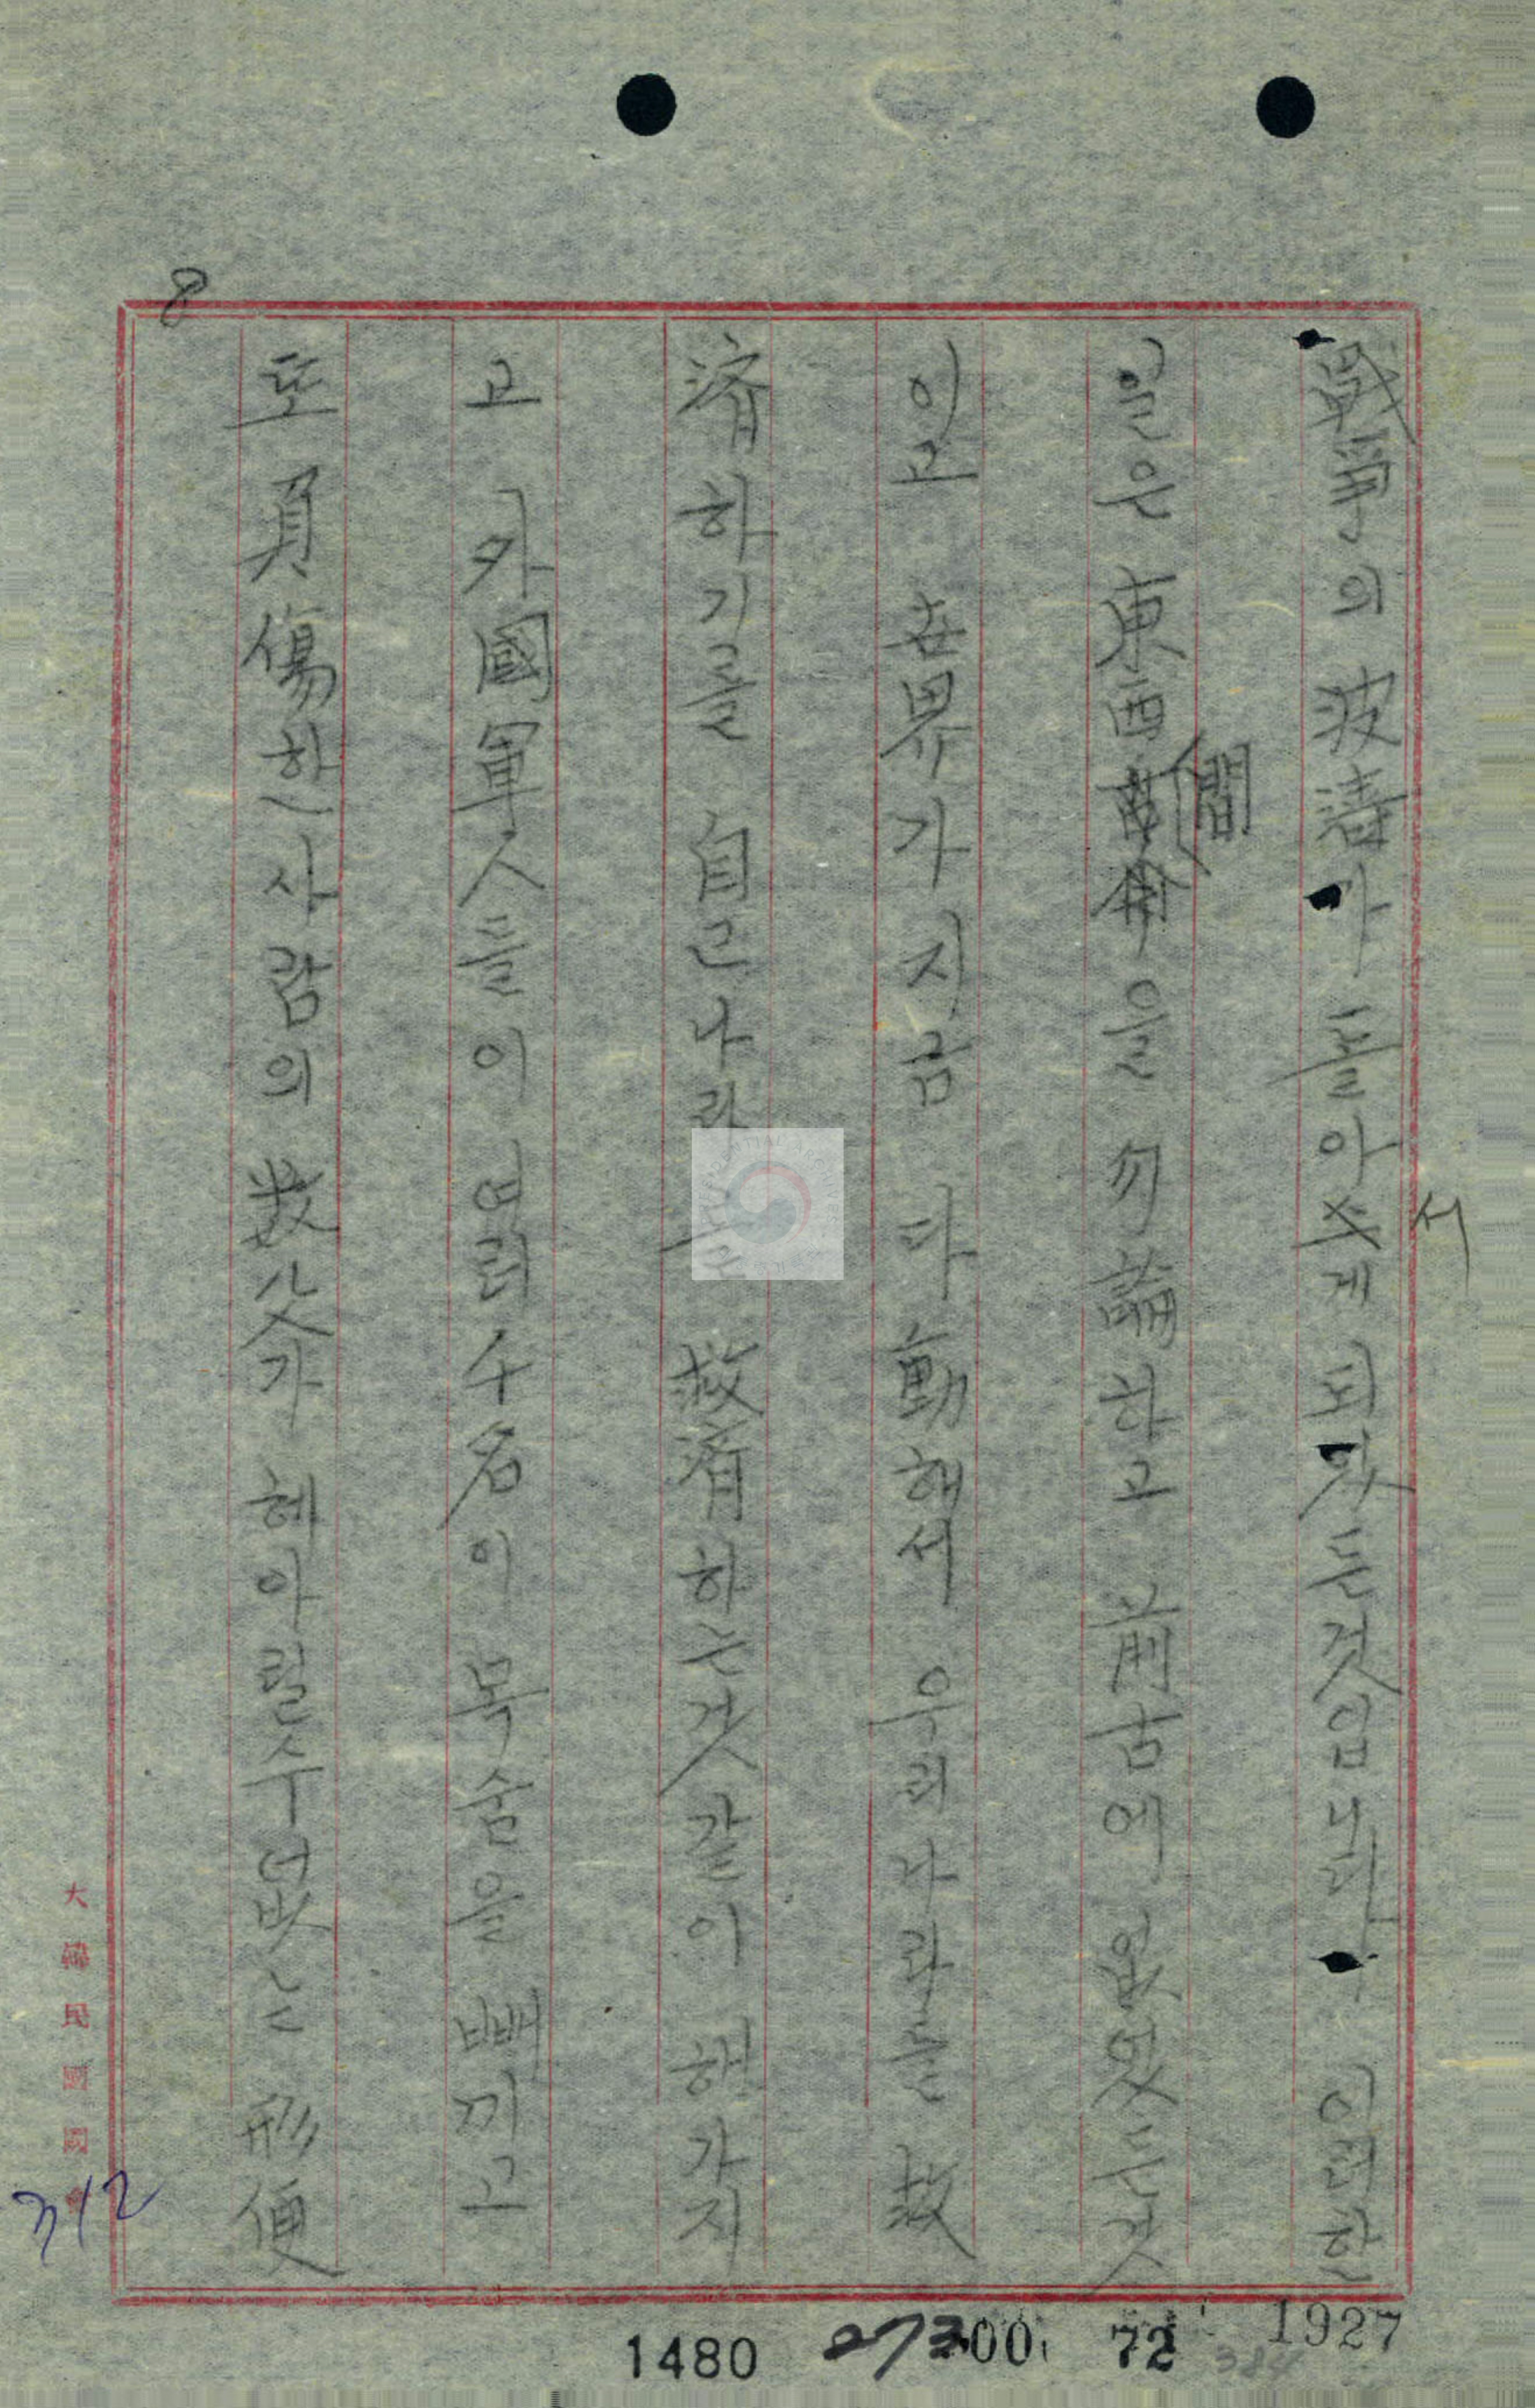 8
戰爭의 波濤가 돌아서게 되엿든것입니다 이러한
일은 東西間을 勿論하고 前古에 없엇든것
이고 世界가 지금 다 動해서 우리나라를 救
濟하기를 自己나라 救濟하는것 갈이 해가지
고 外國軍人들이 여러千名이 목숨을 빼끼고
또 負傷한사람의 数爻가 헤아릴수없는 形便
大韓民國國會
712
1927
1480
72